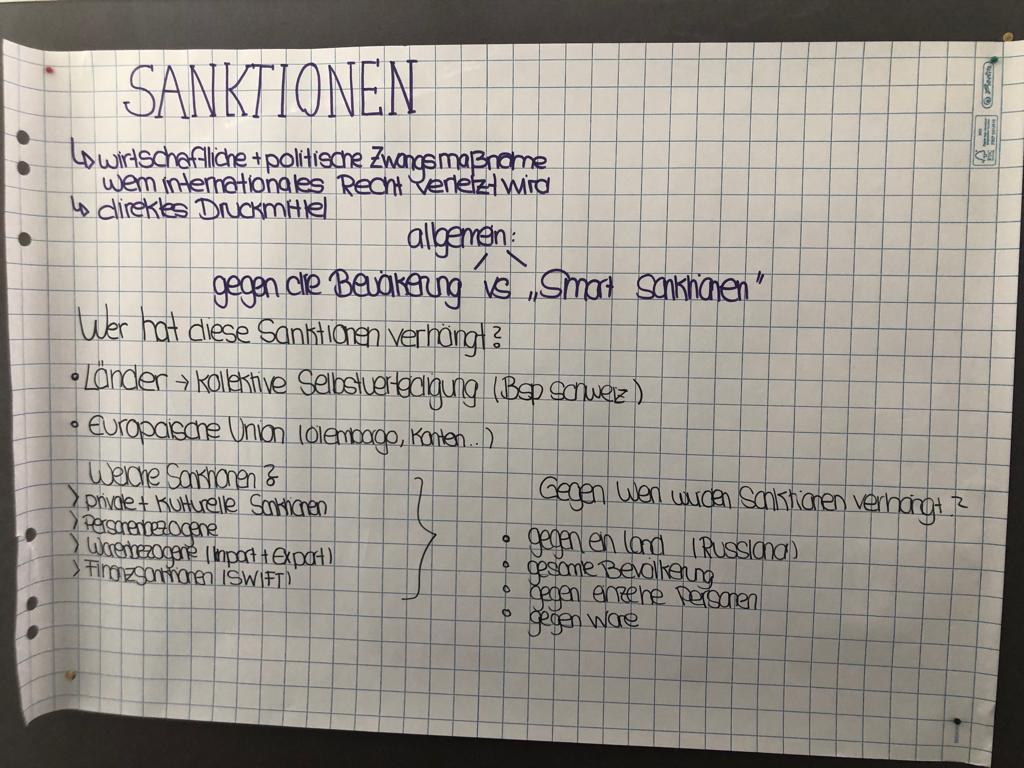 SANKTIONEN
↳ wirtschaftliche + politische Zwangsmaßname
wem internationales Recht verletzt wird
↳ direktes Druckmittel
allgemein:
gegen die Bevölkerung vs „Smart Sanktionen"
Wer hat diese Sanktionen verhängt?
• Länder → kollektive Selbstverteidigung (Bsp Schweiz)
• Europäische Union (ölembago, Konten...)
Welche Sanktionen?
> private + kulturelle Sanktionen
> Personenbezogene
> Warenbezogene (Import + Export)
> Finanzsanktionen (SWIFT)
Gegen wen wurden Sanktionen verhängt?
• gegen ein Land (Russland)
• gesamte Bevölkerung
• gegen einzelne Personen
• gegen Ware